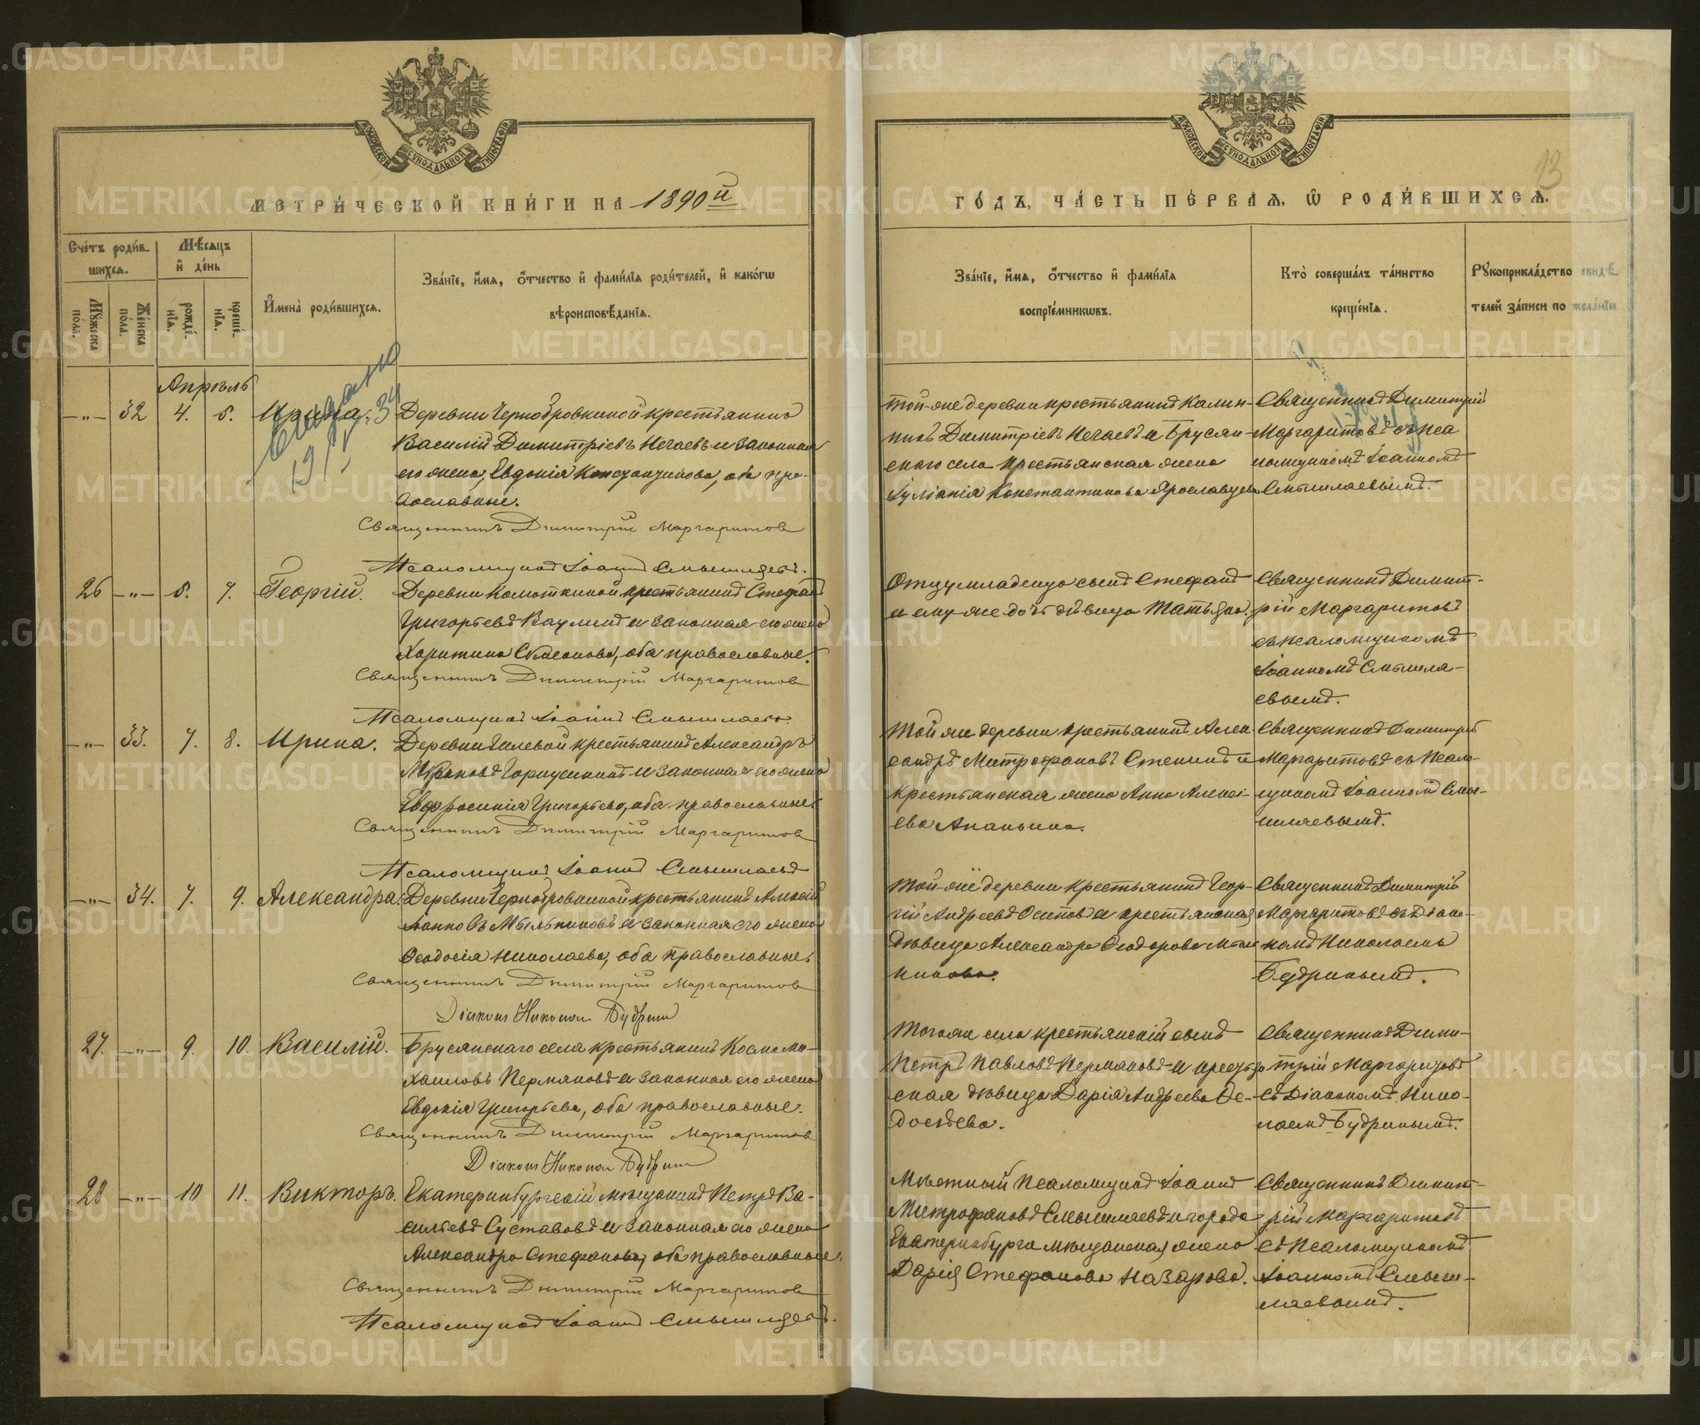 МЕТРИ́ЧЕСКОЙ КНИ́ГИ НА 1890й
ГО́ДЪ, ЧА́СТЬ ПЕ́РВАѦ, Ѽ РОДИ́ВШИХСѦ.
13
Сче́тъ роди́вшихсѧ.
Мѣ́сѧцъ и҆ де́нь
Мꙋ́жеска по́ла.
Же́нска по́ла.
рожде́нїѧ.
креще́нїѧ.
И҆мена̀ роди́вшихсѧ.
Зва́нїе, и҆́мѧ, ѻ҆́тчество и҆ фами́лїѧ роди́телей, и҆ како́гѡ
вѣроисповѣ́данїѧ.
Зва́нїе, и҆́мѧ, ѻ҆́тчество и҆ фами́лїѧ
воспрїе́мникѡвъ.
Кто̀ соверша́лъ та́инство
креще́нїѧ.
Рꙋкоприкла́дство свидѣ́-
телей за́писи по жела́нїю
Апрѣль
32 4. 5. Ирина. Деревни Чернобровкиной крестьянинъ
Василій Димитріевъ Нечаевъ и законная
его жена, Евдокія Константинова, оба пра-
вославные.
Священникъ Димитрій Маргаритовъ
Псаломщикъ Іоаннъ Смышляевъ.
той-же деревни крестьянинъ Калин-
никъ Димитріевъ Нечаевъ и Брусян-
скаго села крестьянская жена
Іуліанія Константинова Ярославцева
Священникъ Димитрій
Маргаритовъ съ пса
ломщикомъ Іоанномъ
Смышляевымъ.
26 5. 7. Георгій. Деревни Колоткиной крестьянинъ Стефанъ
Григорьевъ Ваулинъ и законная его жена
Харитина Симеонова, оба православные.
Священникъ Димитрій Маргаритовъ
Псаломщикъ Іоаннъ Смышляевъ.
Отцу младенца сынъ Стефанъ
и ему же дочь дѣвица Татьяна.
Священникъ Димит-
рій Маргаритовъ
съ псаломщикомъ
Іоанномъ Смышля-
евымъ.
33. 7. 8. Ирина. Деревни Гилевой крестьянинъ Александръ
его жена
Евфросинія Григорьева, оба православные
Священникъ Димитрій Маргаритовъ
Псаломщикъ Іоаннъ Смышляевъ
Той же деревни крестьянинъ Алек
сандръ Митрофановъ Стенинъ и
крестьянская жена Анна Алексі-
ева Ананьина.
Священникъ Димитрій
Маргаритовъ съ Псалом-
щикомъ Іоанномъ Смы-
шляевымъ.
34. 7. 9. Александра. Деревни Чернобровкиной крестьянинъ Алексій
Іоанновъ Мыльниковъ и законная его жена
Ѳеодосія Николаева, оба православные.
Священникъ Димитрій Маргаритовъ
Діаконъ Николай Будринъ
Той-же деревни крестьянинъ Геор-
гій Андреевъ Осиповъ и крестьянская
дѣвица Александра Ѳеодорова Мыль
никова.
Священникъ Димитрій
Маргаритовъ съ Діако-
номъ Николаемъ
Будринымъ.
27. 9. 10. Василій. Брусянскаго села крестьянинъ Косма Ми-
хаиловъ Пермяковъ и законная его жена
Евдокія Григорьева, оба православные.
Священникъ Димитрій Маргаритовъ
Діаконъ Николай Будринъ
Того же села крестьянскій сынъ
Петръ Павловъ Пермяковъ и крестьян
ская дѣвица Дарія Андреева Ѳе-
досѣева.
Священникъ Дими-
трій Маргаритовъ
съ Діакономъ Нико-
лаемъ Будринымъ.
28 10 11. Викторъ. Екатеринбургскій мѣщанинъ Петръ Ва-
сильевъ Суставовъ и законная его жена
Александра Стефанова, оба православные.
Священникъ Димитрій Маргаритовъ
Псаломщикъ Іоаннъ Смышляевъ.
Мѣстный Псаломщикъ Іоаннъ
Митрофановъ Смышляевъ и города
Екатеринбурга мѣщанская жена
Дарія Стефанова Назарова.
Священникъ Димит-
рій Маргаритовъ
съ Псаломщикомъ
Іоанномъ Смыш-
ляевымъ.
METRIKI.GASO-URAL.RU